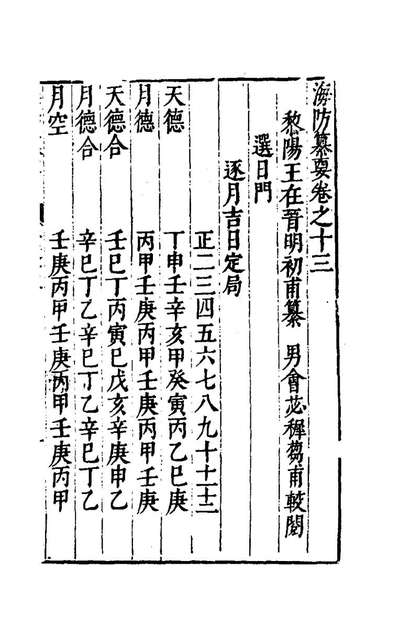 海防纂要卷之十三
黎陽王在晉明初甫纂 男會苾穉芻甫較閱
選日門
逐月吉日定局
正二三四五六七八九十十一十二
天德 丁申壬辛亥甲癸寅丙乙巳庚
月德 丙甲壬庚丙甲壬庚丙甲壬庚
天德合 壬巳丁丙寅巳戊亥辛庚申乙
月德合 辛巳丁乙辛巳丁乙辛巳丁乙
月空 壬庚丙甲壬庚丙甲壬庚丙甲